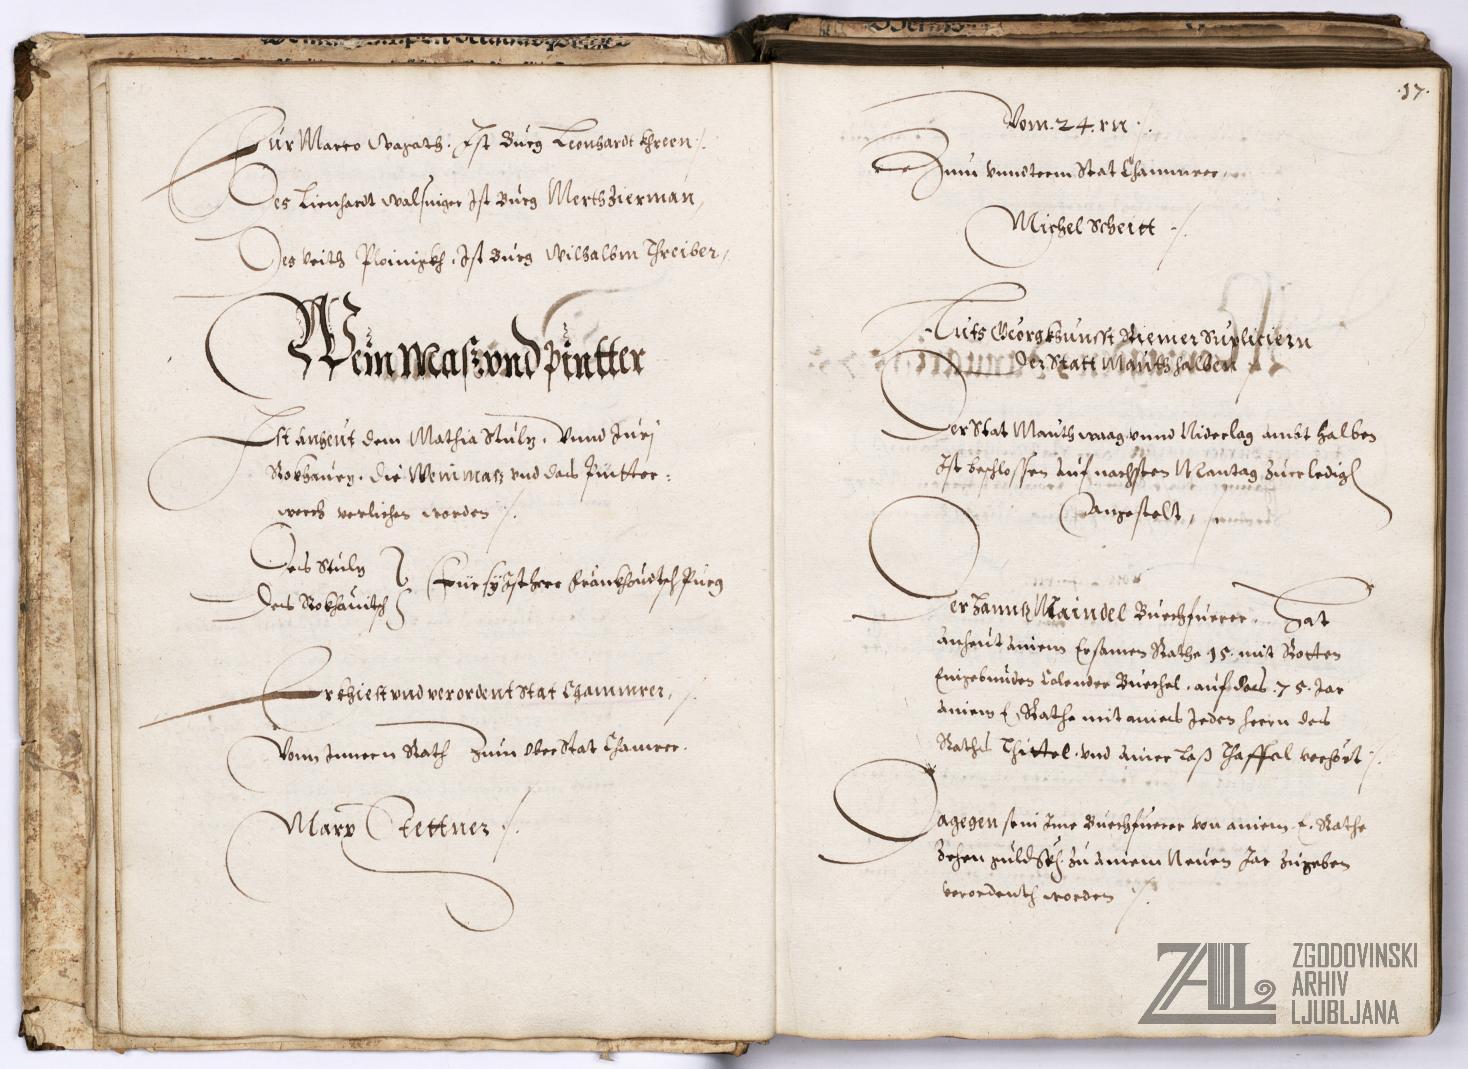 Für Marco Wagath. Ist Burg Leonhardt Khreen
Des Lienhardt Ist Burg Merth Zierman
Des Veith Ist Burg Wilhalbm Threiber
Wein Masz vnd Pintter
Ist anheut dem Mathia Stulz. Vnnd Jurj
die Wein Masz vnd das Pintter
werch verlichen worden
Des Stulz
Des Rokhavitsch
Für sy Ist herr Purg
Erkhiest vnd verordent Stat Chammrer
Vom Innern Rath Zum Ober Stat Chamrer.
Marx Stettner
.17.
Vom .24.
Zum vnndterm Stat Chammrer
Michel Scheitt
Auf Georg Riemer Supliciern
der Statt Mauth halben
Der Stat Mauth waag vnnd Niderlag ambt halben
Ist beschlossen auf nachsten Mantag Zu erledigen
Angestelt
Der Hannß Maindel Buechfuerer. Hat
anheut ainem Ersamen Rathe 15. mit Rotten
Eingebunden Calender Buechel. auf das .75. Jar
ainem E. Rathe mit aines Jeden herrn des
Raths Thittel. vnd ainer Laß Thaffel verhört
Dagegen sein Ime Buechfuerer von ainem. E. Rathe
Zehen guld Zu ainem Neuen Jar Zugeben
verordenth worden
ZAL
ZGODOVINSKI
ARHIV
LJUBLJANA